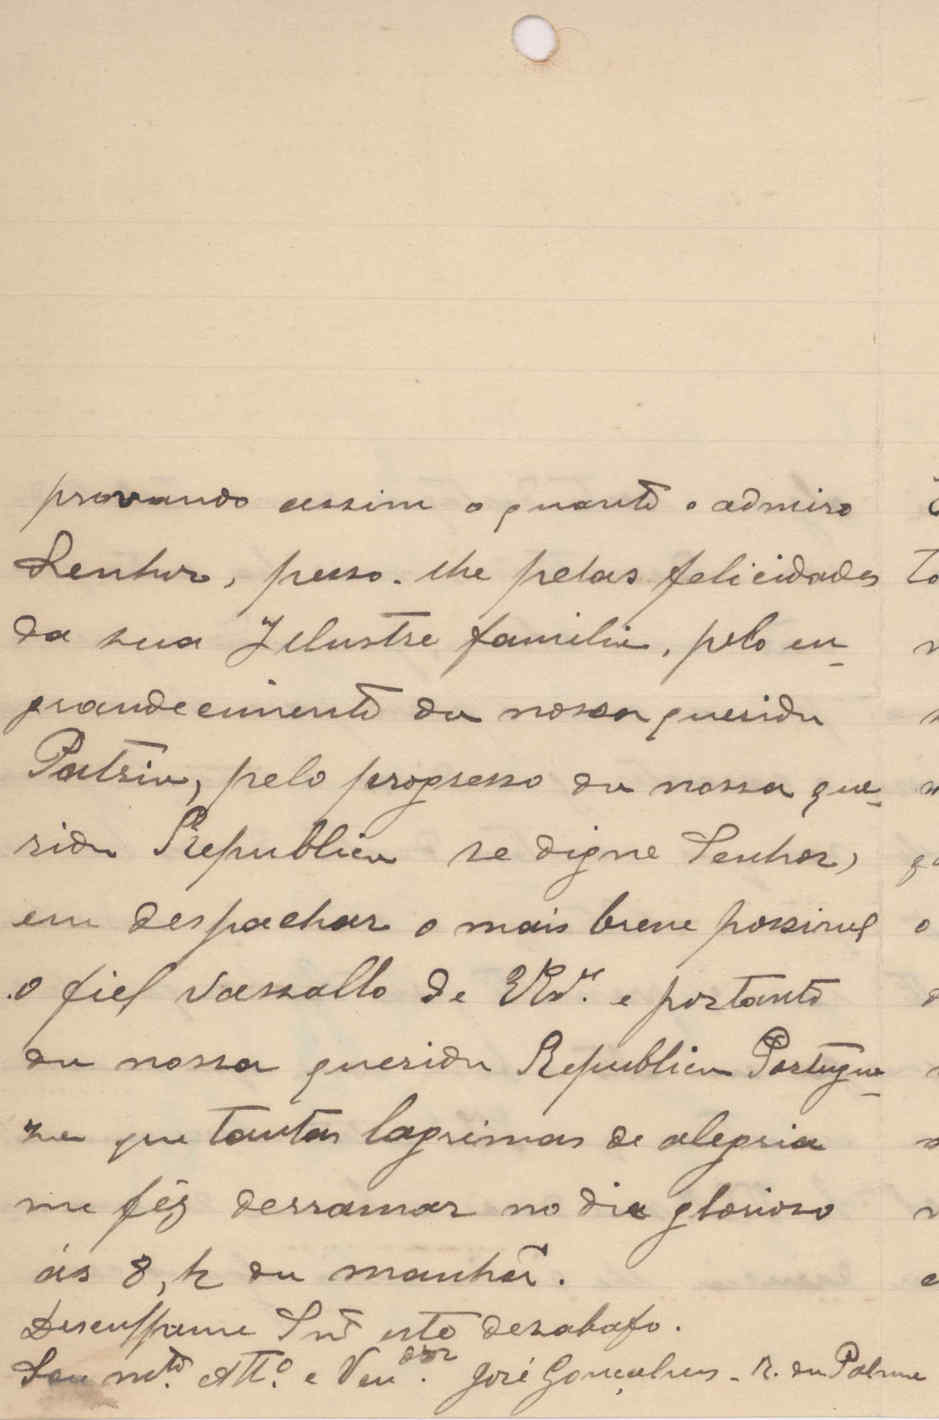 provando assim o quanto o admiro
Senhor, peço-lhe pelas felicidades
da sua Illustre familia, pelo en-
grandecimento da nossa querida
Patria, pelo progresso da nossa que-
rida Republica se digne Senhor,
em despachar o mais breve possivel
o fiel vassallo de V. e portanto
da nossa querida Republica Portugue-
za que tantas lagrimas de alegria
me fêz derramar no dia glorioso
ás 8, h da manhã.
Desculpame Snr esto desabafo.
Seu mto. Atto. e Vendor. José Gonçalves - R. da Palma